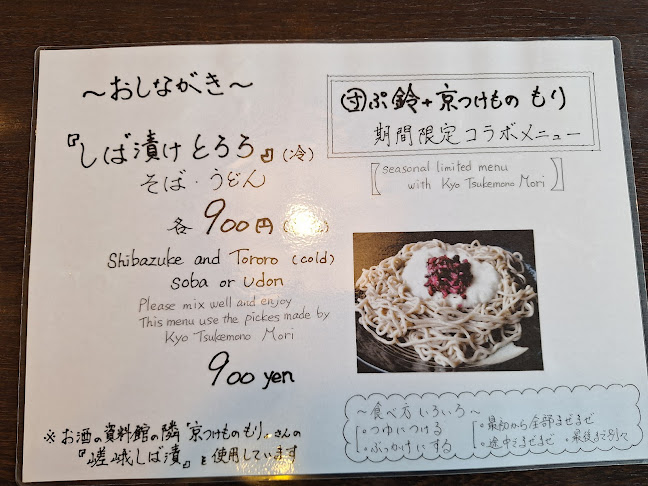 ～おしながき～
『しば漬けとろろ』(冷)
そば・うどん
各 900円
Shibazuke and Tororo (cold)
soba or udon
Please mix well and enjoy
This menu use the pickes made by
Kyo Tsukemono Mori
900 yen
※お酒の資料館の隣「京つけものもり」さんの
『嵯峨しば漬』を使用しています
ぷ鈴+京つけもの もり
期間限定コラボメニュー
seasonal limited menu
with Kyo Tsukemono Mori
～食べ方いろいろ～
・つゆにつける
・ぶっかけにする
・最初から全部まぜまぜ
・途中でまぜまぜ ・最後まで別々で